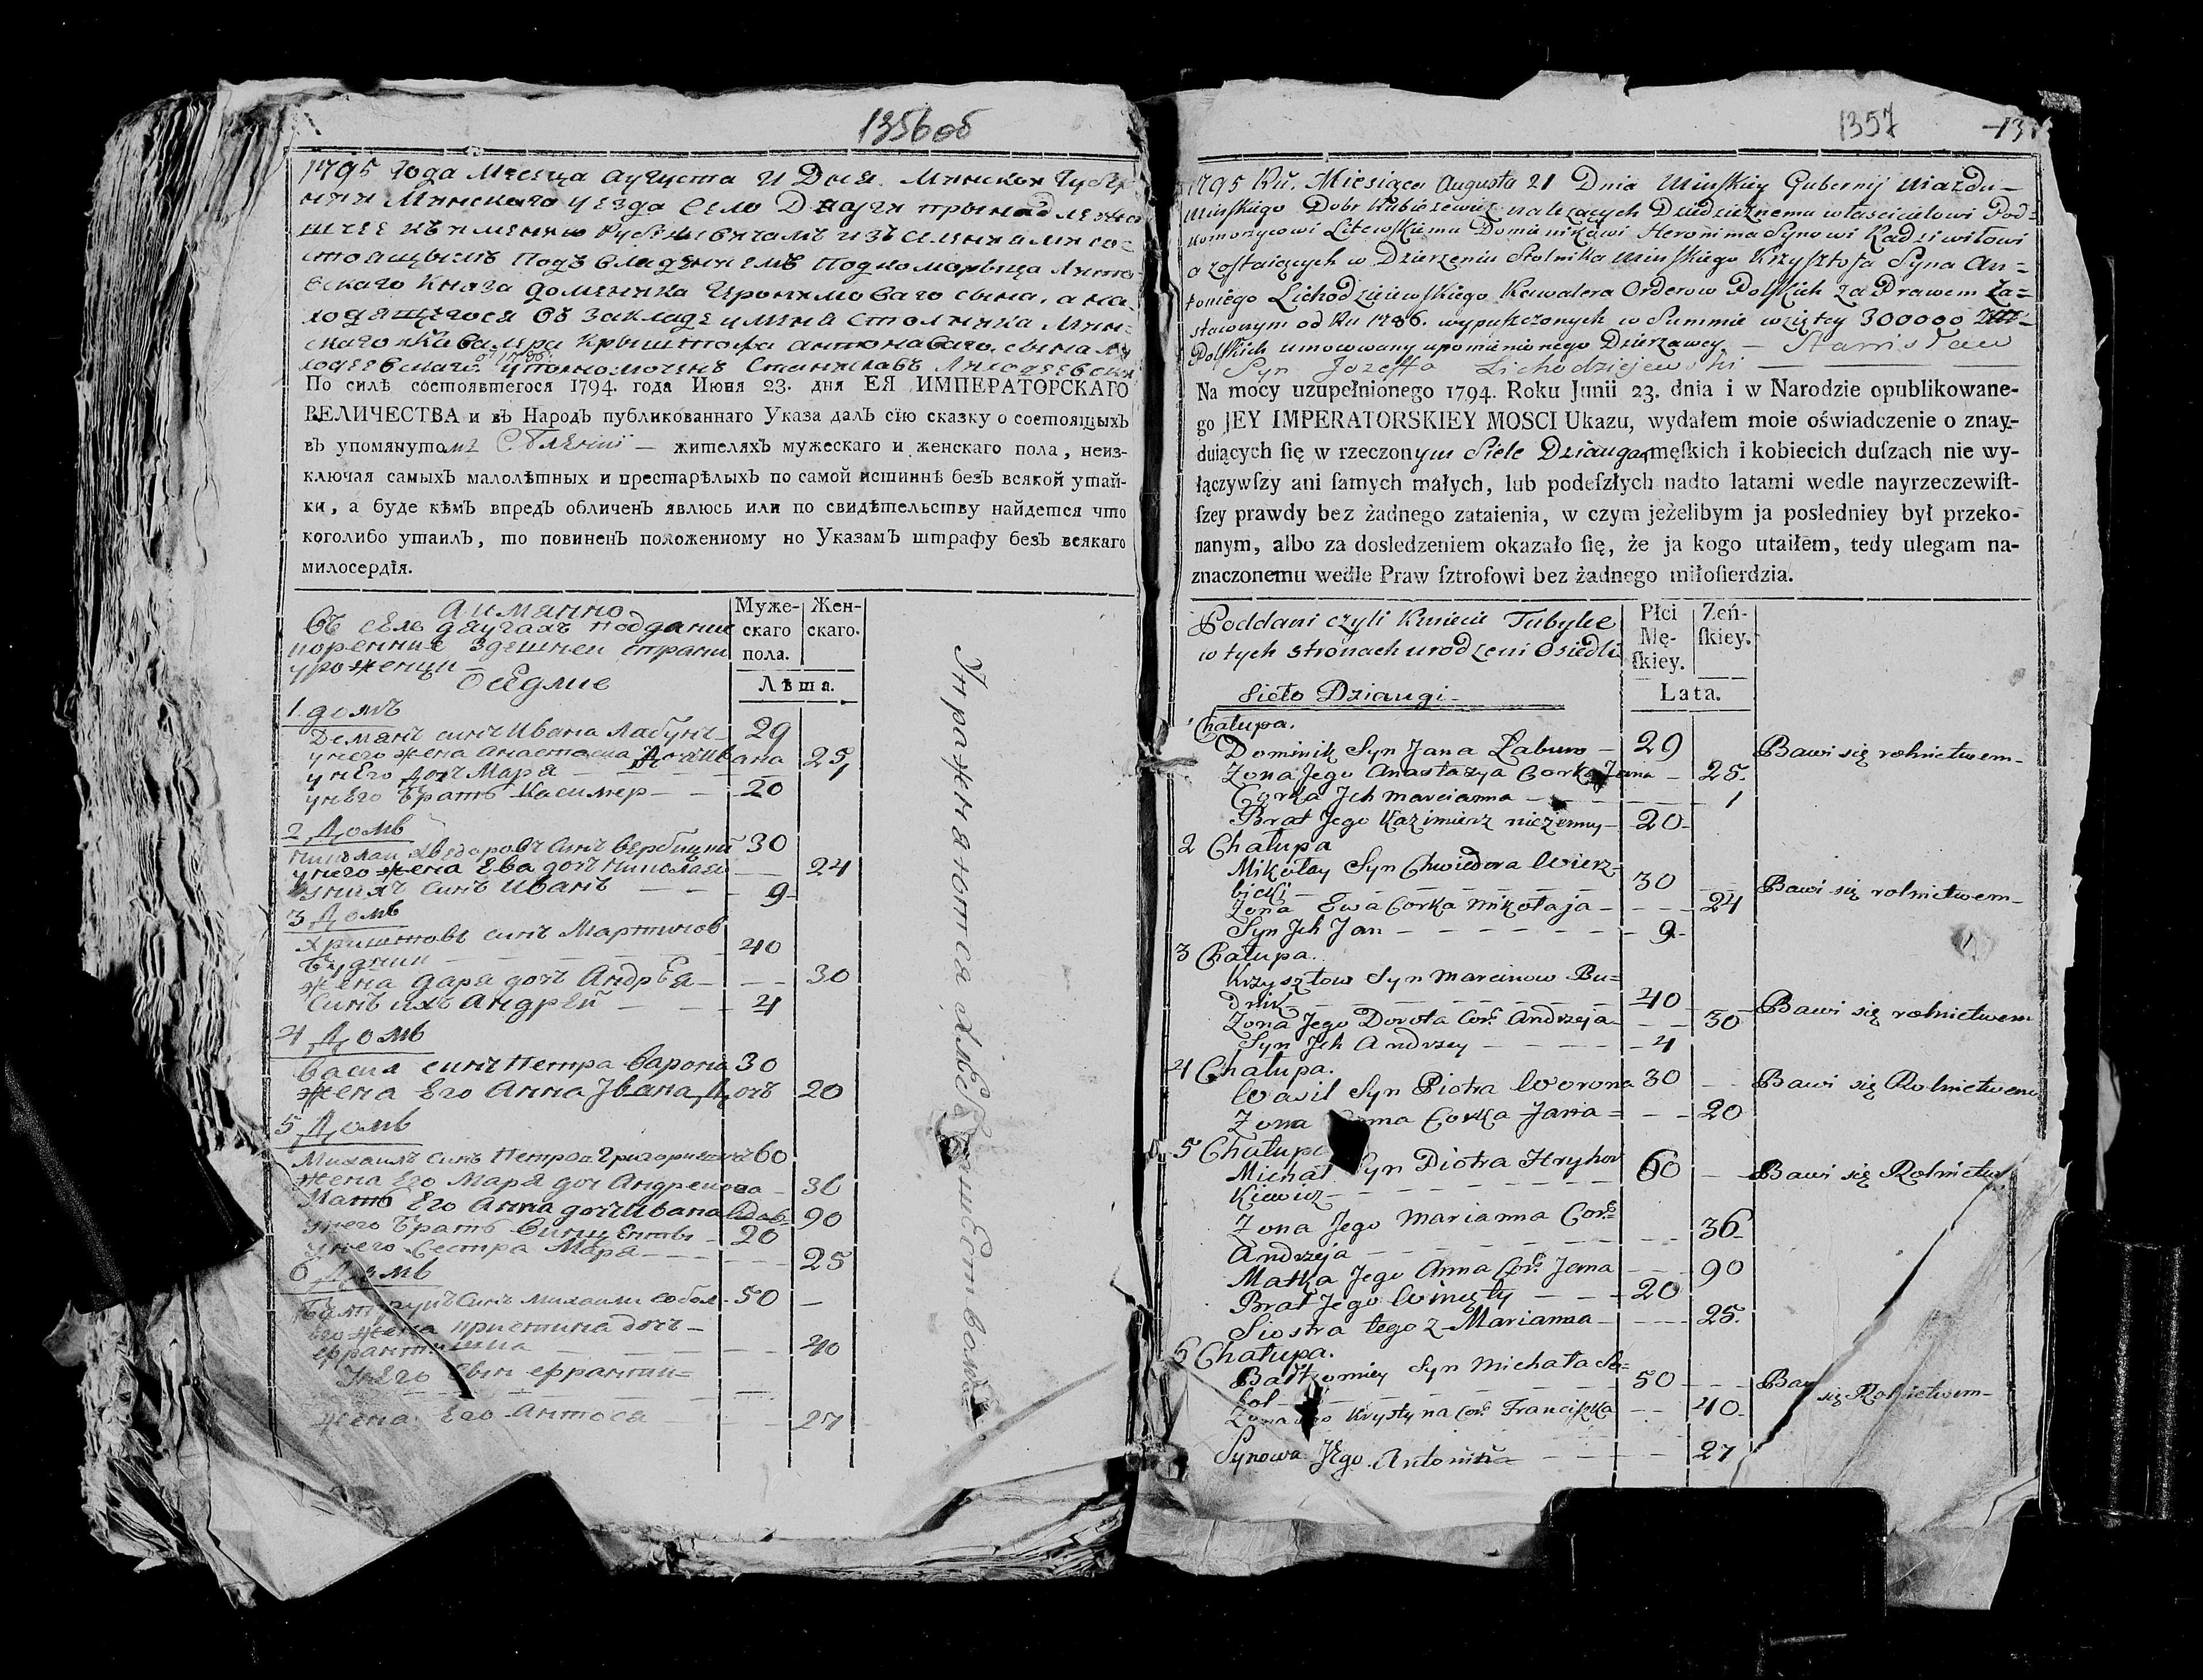 1356 об
1795 года Месеца Августа 21 Дня. Минской Губер
нии Минскаго уезда Село Дяуги прынадлежа
щее къ имению Кубеневичамъ изъ селениями со
стоящымъ Подъ владениемъ Подкоморыца Лито
вскаго Князя доминика Иронимоваго сына, а на
ходящегося въ закладе имена Столника Мин
скаго Кавалера Крыштофа антонаваго сына Ли
ходеевскаго уполномоченъ Станиславъ Лиходеевский
По силѣ состоявшегося 1794. года Июня 23. дня ЕЯ ИМПЕРАТОРСКАГО
ВЕЛИЧЕСТВА и въ Народъ публикованнаго Указа далъ сїю сказку о состоящыхъ
въ упомянутомъ Селении — жителяхъ мужескаго и женскаго пола, неиз-
ключая самыхъ малолѣтныхъ и престарѣлыхъ по самой истиннѣ безъ всякой утай-
ки, а буде кѣмъ впредъ обличенъ явлюсь или по свидѣтельству найдется что
коголибо утаилъ, то повиненъ положенному по Указамъ штрафу безъ всякаго
милосердїя.
А имянно
Въ селе дяугахъ подданые
коренные здешней страны
уроженцы
Оседлые
Муже-
скаго
пола.
Жен-
скаго.
Лѣта.
1 домъ
Демянъ синъ Ивана Лабунъ — 29
у него жена Анастасиа Дочъ Ивана 25
у нЕго Дочъ Маря — 1
у нЕго Братъ Касимер — 20
2 Домъ
Николай Хведоровъ Синъ вербицкий 30
у него жена Ева дочъ Николаева — 24
у нихъ Синъ Иванъ — 9
3 Домъ
Хриштовъ синъ Мартинов
Будник — 40
жена даря дочъ Андрѣя — 30
Синъ ихъ Андрей — 4
4 Домъ
Васил синъ Петра варона 30
жена Его Анна Ивана Дочъ 20
5 Домъ
Михаилъ синъ Петра Григоркевича 60
жена Его Маря доч Андреиова — 36
Мать Его Анна дочъ Ивана вдав. 90
у него Братъ Винцентъ — 20
у него Сестра Маря — 25
6 Домъ
Синъ Михаили собол — 50
его жена Кристина дочъ
ефрантишка — 40
У нЕго Сын ефранти =
жена Его Антося — 27
Упражняются хлебопашЕством
1357
1795 Ru. Miesiąca Augusta 21 Dnia Minskiey Gubernij Uiazdu —
Minskiego Dobr Kubiszewicz należących Dziedzicznemu własicielowi Pod =
komorzycowi Litewskiemu Dominikowi Heronima Synowi Radziwiłowi
a zostaiących w Dzierzeniu Stolnika Minskiego Krzysztofa Syna An =
toniego Lichodziiewskiego Kawalera Orderow Polskich za Prawem Za =
stawnym od Ru 1786. wypuszczonych w Summie wziętey 300000 Zł —
Polskich umocowany upomienionego Dzierzawcy — Stanisław
Syn Jozeffa Lichodziejewski
Na mocy uzupełnionego 1794. Roku Junii 23. dnia i w Narodzie opublikowane-
go JEY IMPERATORSKIEY MOSCI Ukazu, wydałem moie oświadczenie o znay-
duiących ſię w rzeczonym Siele Dziaugach męſkich i kobiecich duſzach nie wy-
łączywſzy ani ſamych małych, lub podeſzłych nadto latami wedle nayrzeczewiſt-
ſzey prawdy bez żadnego zataienia, w czym jeżelibym ja posledniey był przeko-
nanym, albo za dosledzeniem okazało ſię, że ja kogo utaiłem, tedy ulegam na-
znaczonemu wedle Praw ſztrofowi bez żadnego miłoſierdzia.
Poddani czyli Kmiecie Tubylce
w tych stronach urodzeni Osiedli
Płci
Mę-
ſkiey.
Zeń-
ſkiey.
Lata.
Sieło Dziaugi —
1 Chałupa.
Dominik Syn Jana Łabuno — 29 Bawi się rolnictwem —
Zona Jego Anastazya Corka Jana — 25.
Corka Jch Marcianna — 1
Brat Jego Kazimierz nieżenny — 20
2 Chałupa
Mikołay Syn Chwiedora Wierz
bicki — 30 Bawi się rolnictwem —
Zona Ewa Corka Mikołaja — 24
Syn Jch Jan — 9
3 Chałupa.
Krzysztow Syn Marcinow Bu =
dnik — 40 Bawi się rolnictwem
Zona Jego Dorota Cor. Andrzeja — 30
Syn Jch Andrzey — 4
4 Chałupa.
Wasil Syn Piotra Worona 30 Bawi się Rolnictwem
Zona Corka Jana = 20
5 Chałupa
Michał Syn Piotra Hryhor
kiewicz — 60 Bawi się Rolnictw
Zona Jego Marianna Cor.
Andrzeja — 36
Matka Jego Anna Cor. Jana — 90
Brat Jego Wincęty — 20
Siostra tego z Marianna — 25.
6 Chałupa.
Bartłomiey Syn Michała So =
bol — 50 Baw się Rolnictwem —
Zona Krystyna Cor. Franciszka — 40
Synowa JEgo Antonina — 27